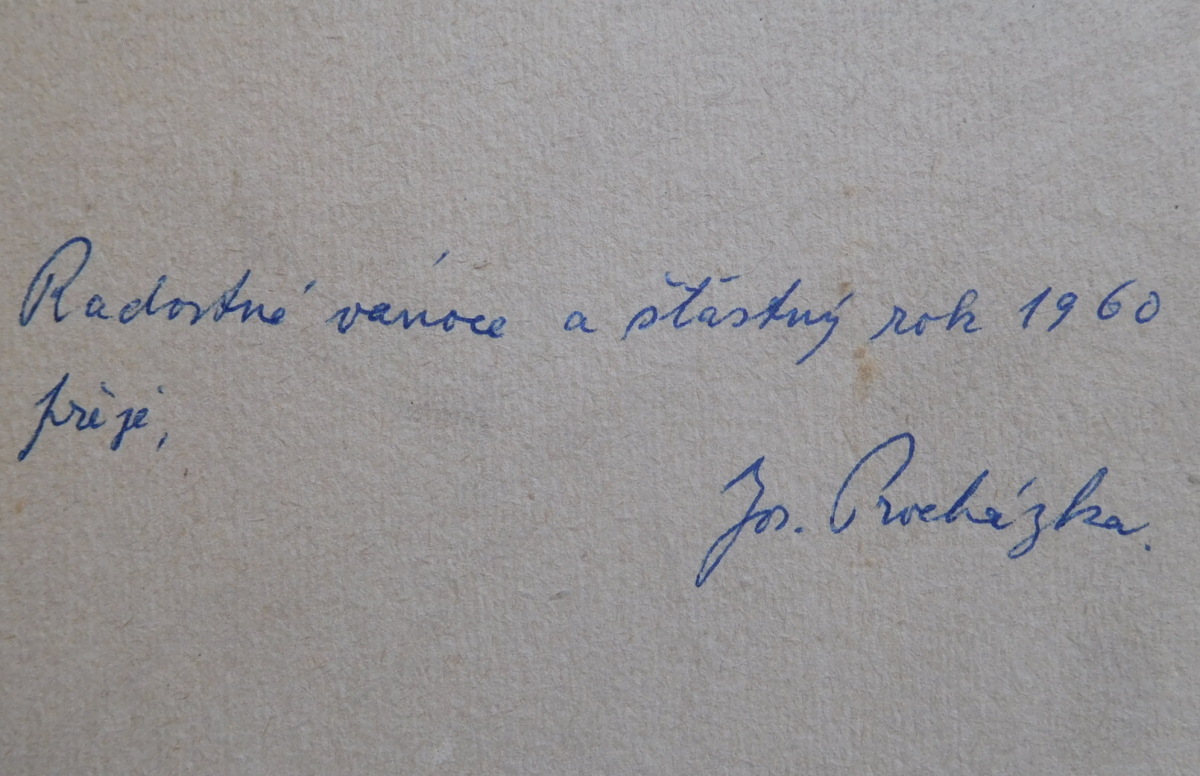 Radostné vánoce a šťastný rok 1960
přeje,
Jos. Procházka.